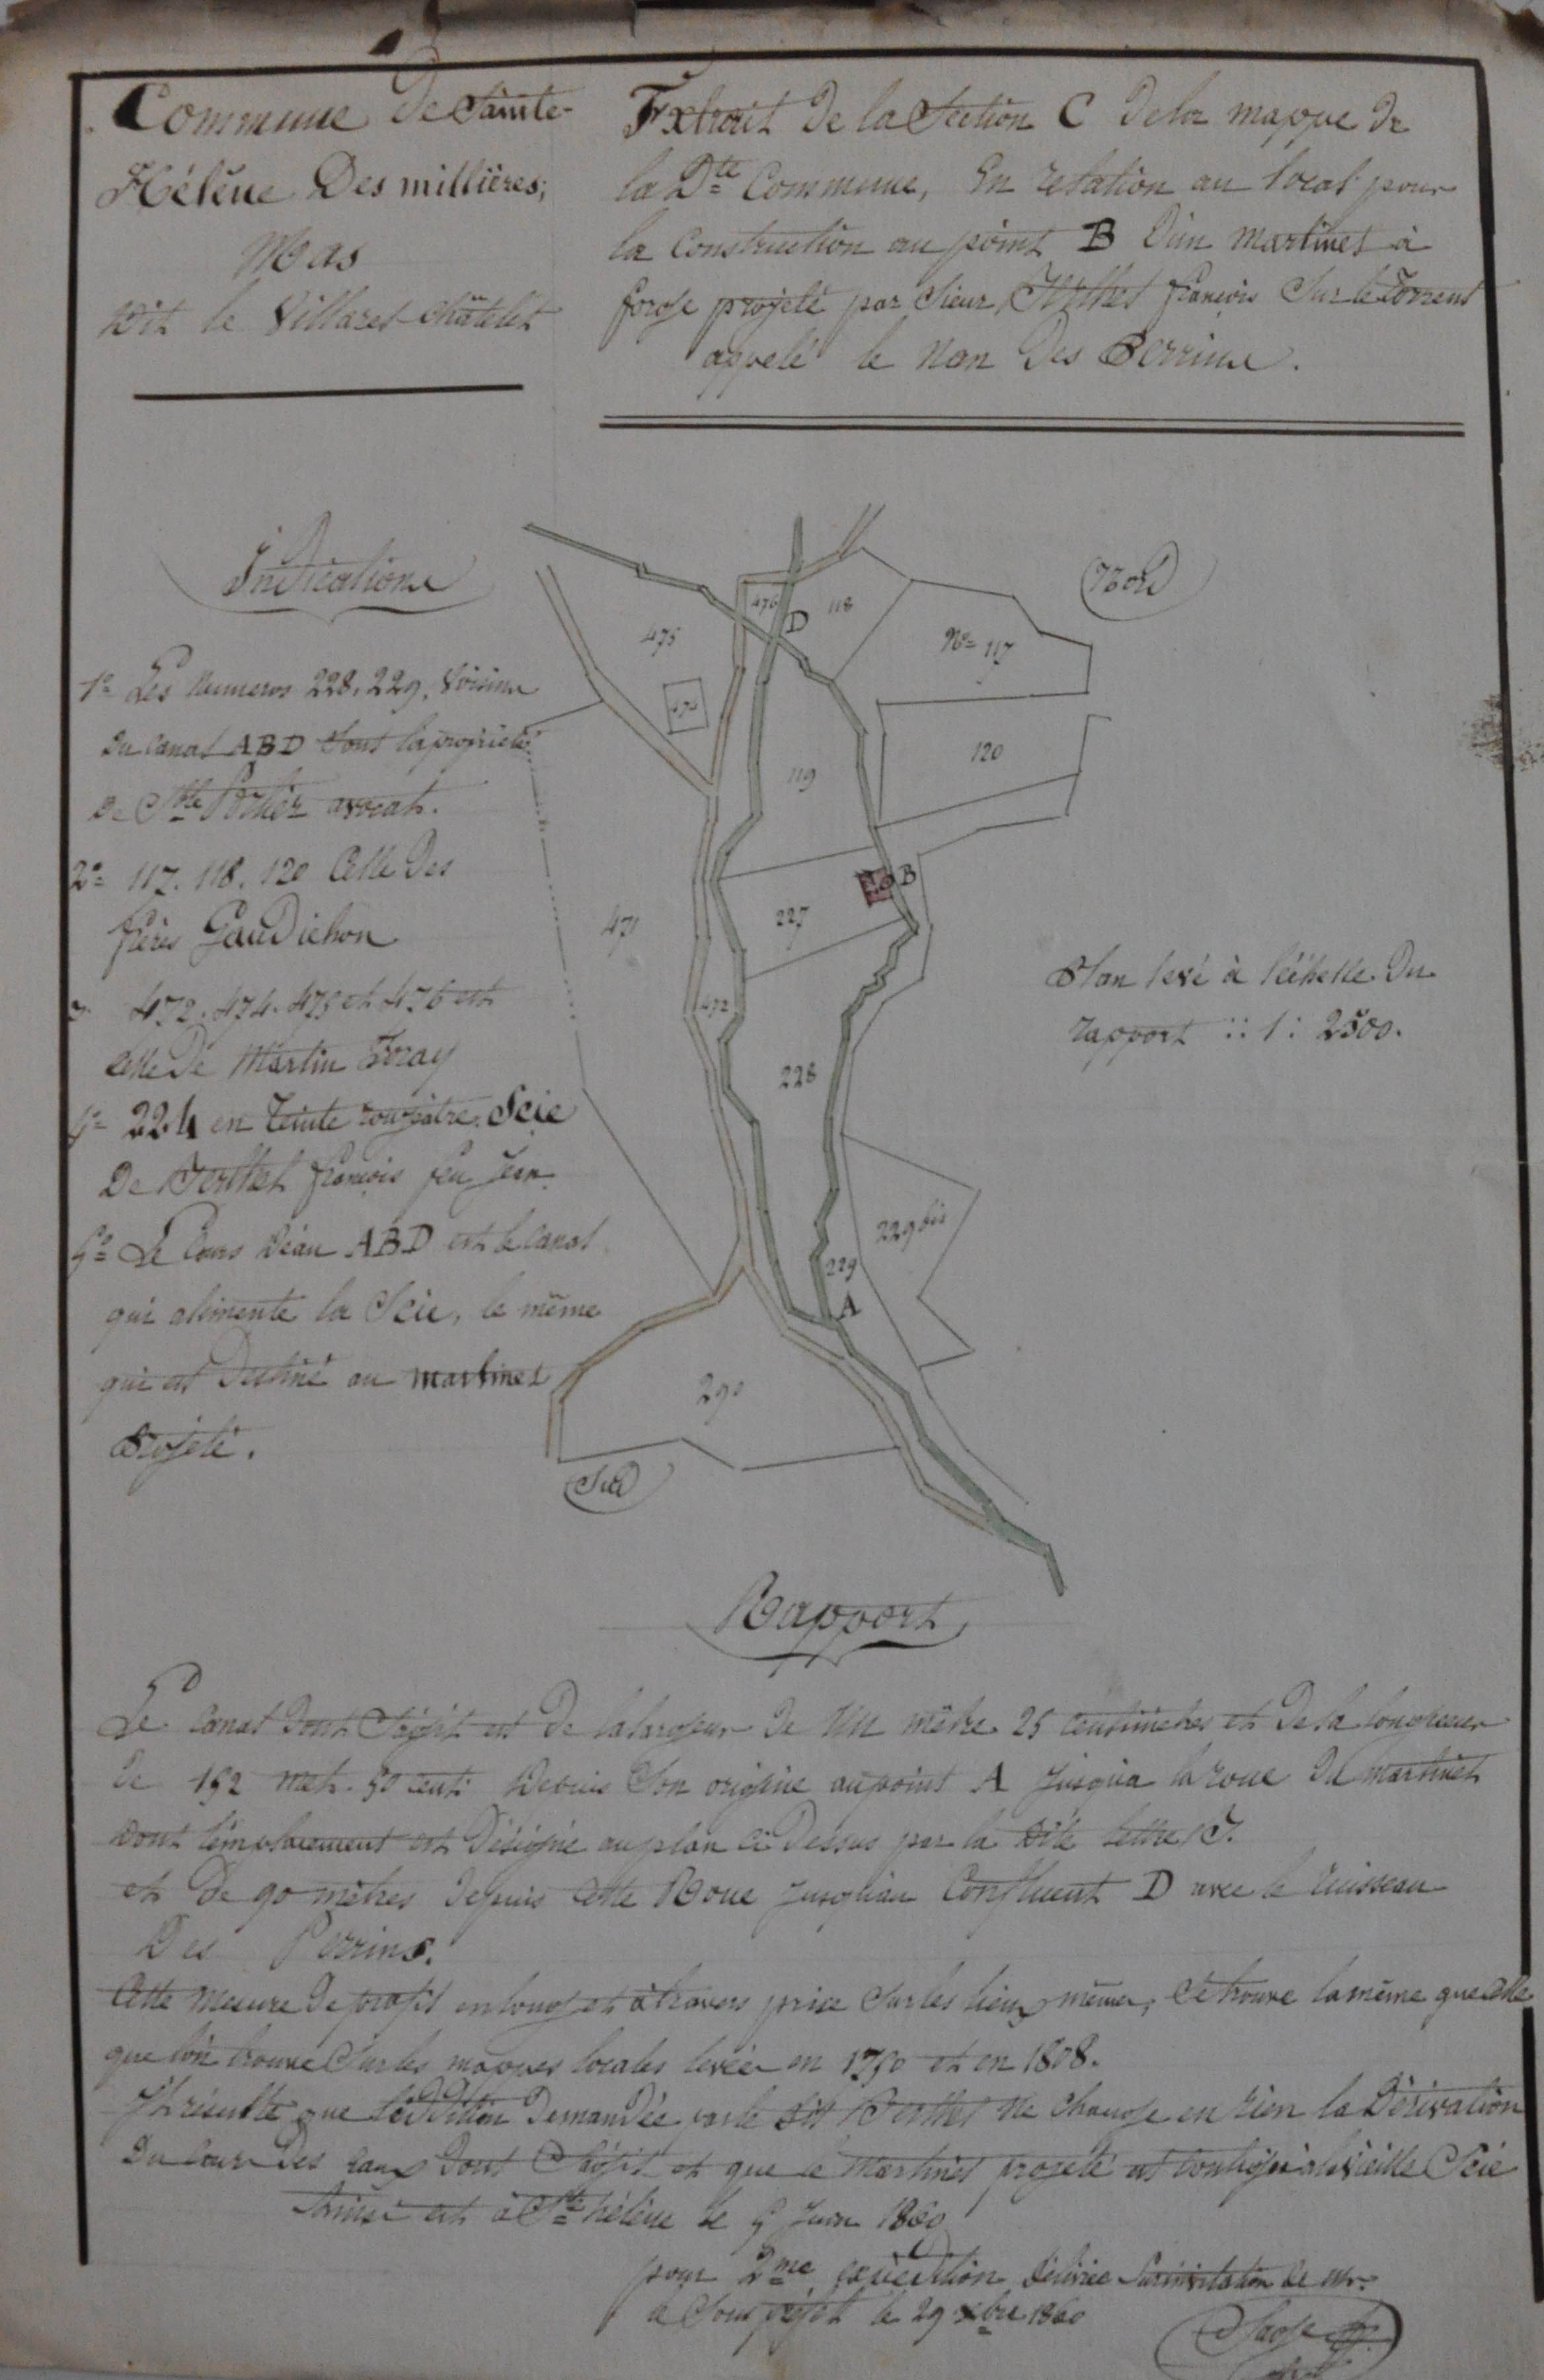 Commune De Sainte-
Hélène Des millières;
Mas
Dit le Villaret-châtelet
Extrait De la Section C De la mappe De
la Dte Commune, En relation au local pour
la Construction au point B D'un martinet à
forge projeté par Sieur Berthet françois Sur le Torrent
appelé le Nan Des Perrins.
Indications
Nord
1º Les Numeros 228, 229, Voisins
Du Canal ABD Sont la propriété
De avocat.
2º 117. 118. 120 Celle Des
frères Gaudichon
3º 472. 474. 475 et 476 est
Celle De Martin Foray
4º 224 en Teinte rougeâtre Scie
De Berthet françois feu Jean
5º Le Cours D'eau ABD est le Canal
qui alimente la Scie, le même
qui est Destiné au martinet
Projété.
476
D
118
475
Nº 117
474
119
120
B
227
471
472
228
229 bis
229
A
290
Sud
Plan levé à l'échelle Du
rapport :: 1 : 2500.
Rapport
Le Canal Dont S'agit est De la largeur De Un mètre 25 centimètres et De la longueur
De 152 met. 50 cent. Depuis Son origine au point A Jusqu'à la roue Du Martinet
Dont l'emplacement est Désigné au plan Ci Dessus par la Dite lettre B.
et De 90 mètres Depuis Cette Roue Jusqu'au Confluent D avec le ruisseau
Des Perrins.
Cette Mesure De profil en long et à travers prise Sur les lieux mêmes, Se trouve la même que Celle
que l'on trouve Sur les mappes locales levées en 1730 et en 1808.
Il résulte que l'addition Demandée par le Dit Berthet Ne Change en rien la Dérivation
Du Cours Des Eaux Dont S'agit et que le Martinet projeté est Contigu à la vieille Scie
Ainsi est à Ste hélène le 5 Juin 1860
pour 2me expédition Délivrée Sur invitation De Mr.
le Sous préfet le 29 xbre 1860